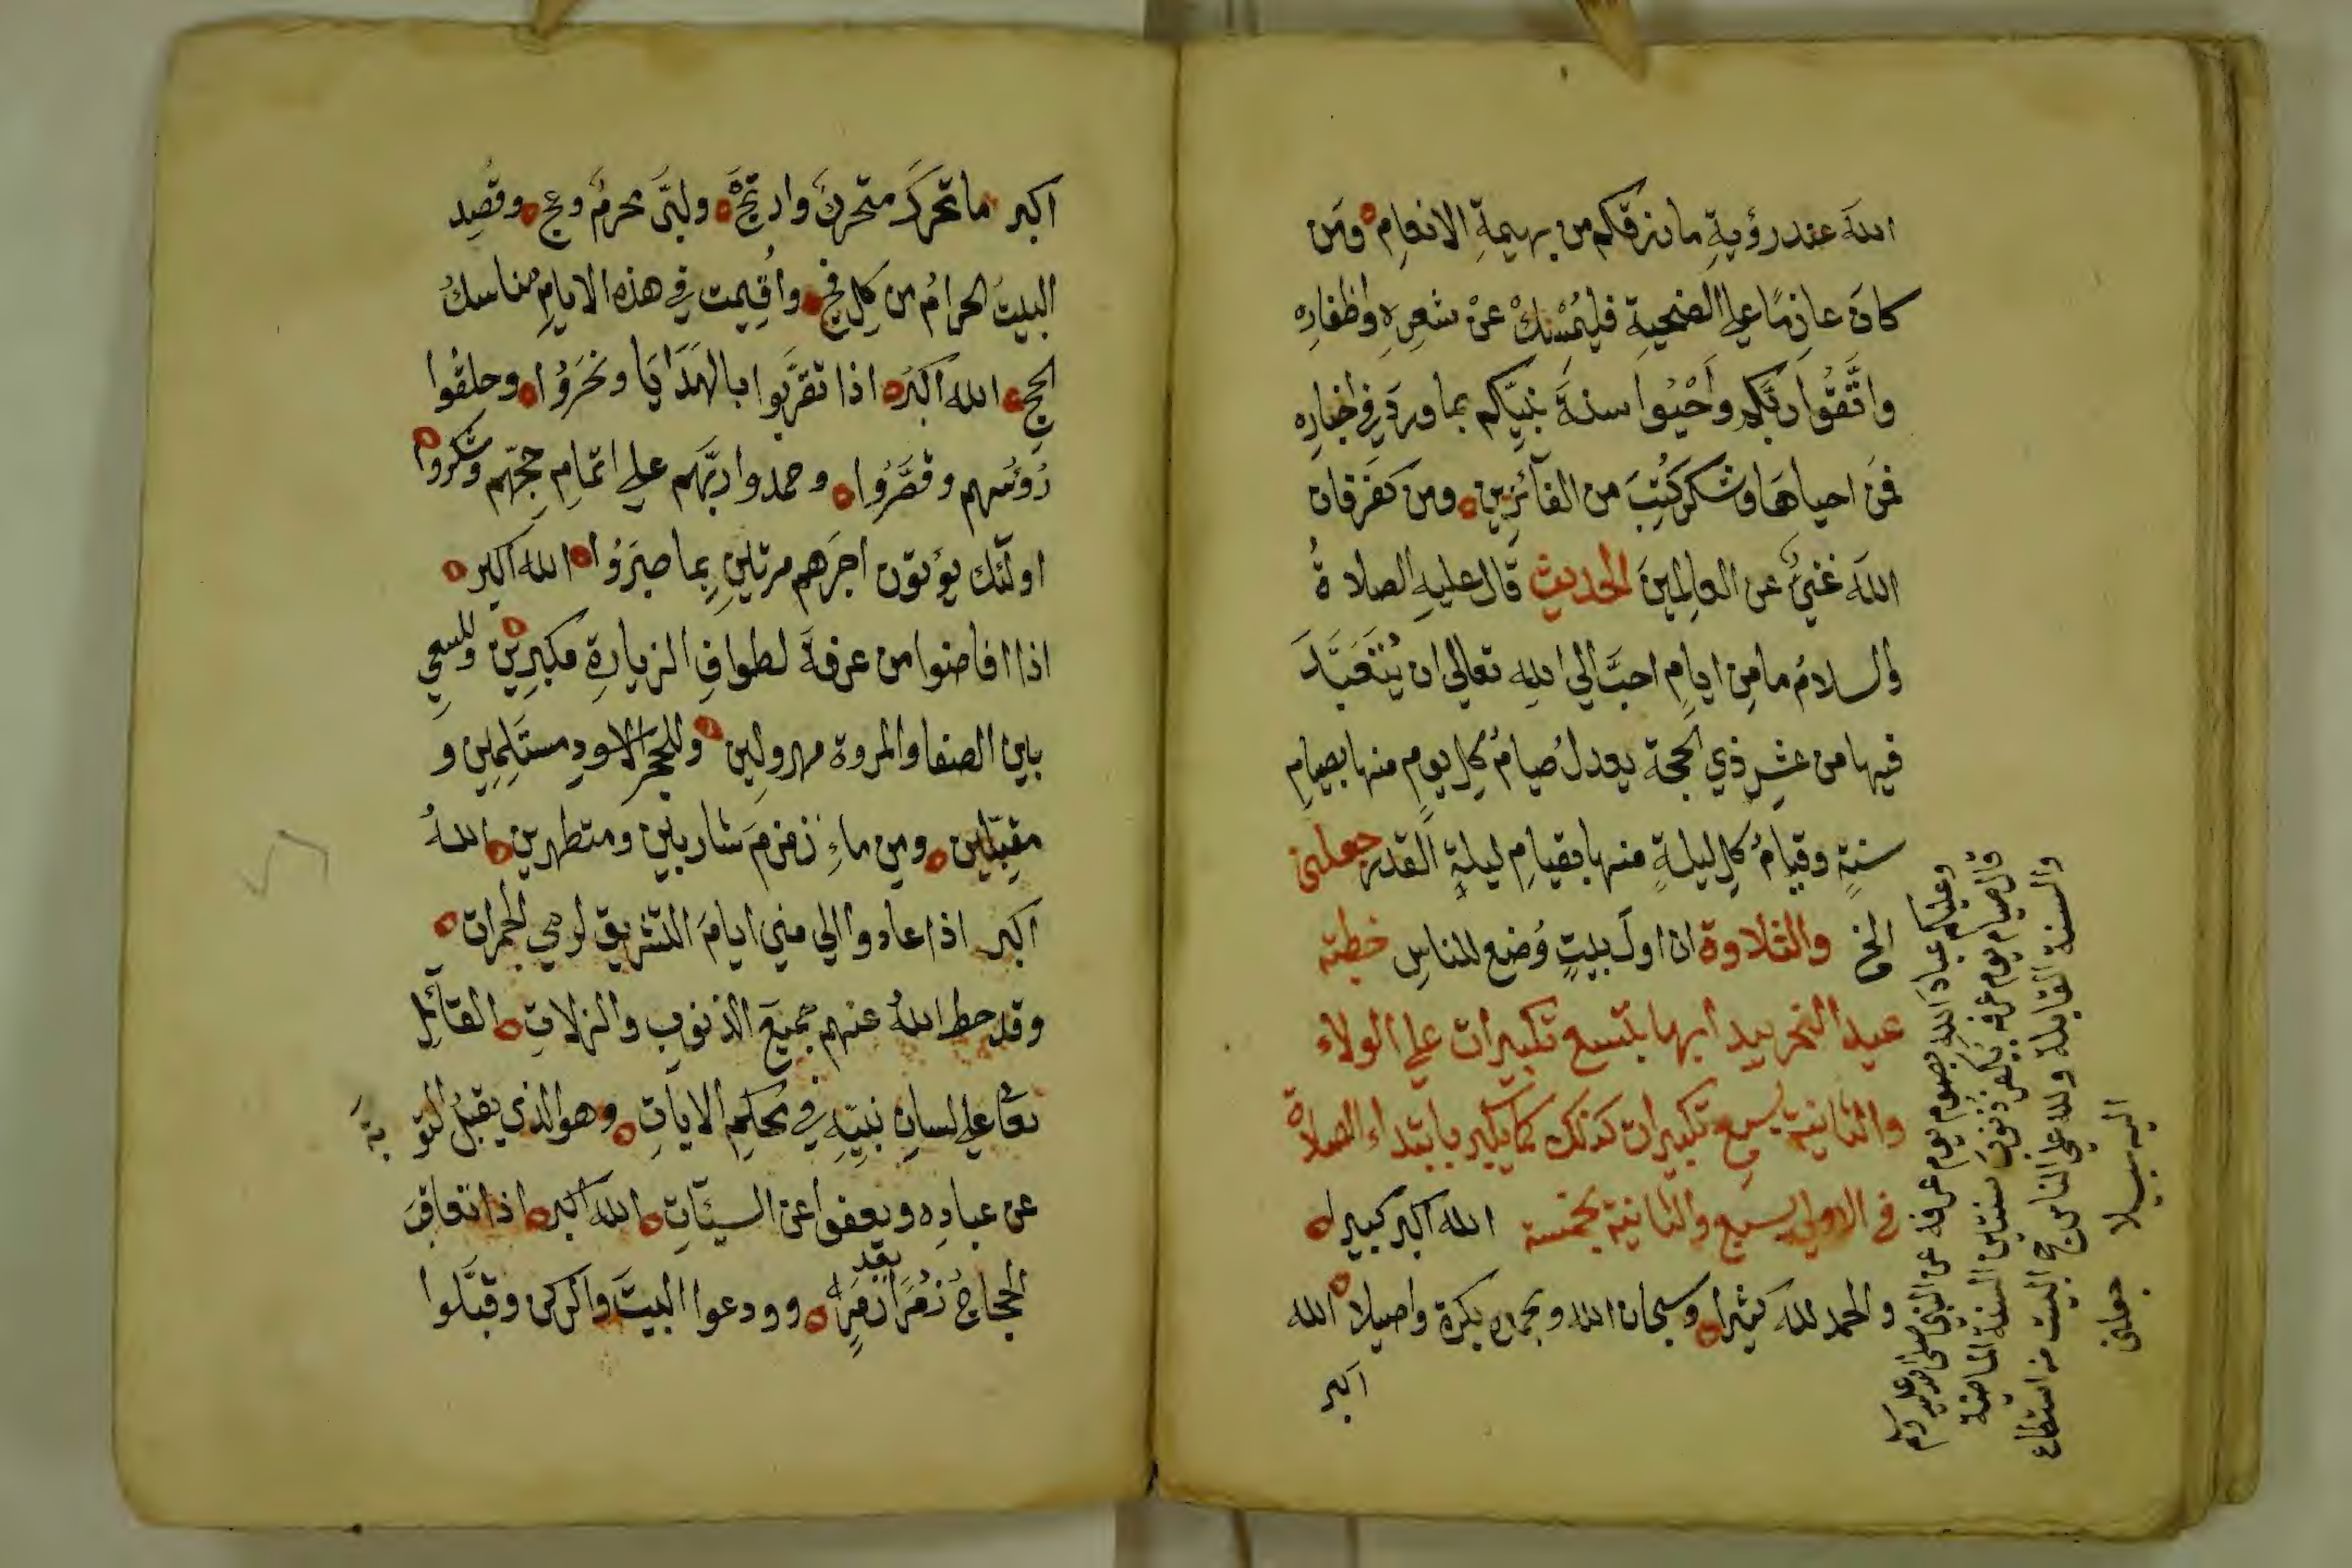 الله عند رؤيةِ ما رزقكم من بهيمةِ الانعامِ ومَن
كانَ عازمًا على الضحيةِ فليُمْسِكْ عنْ شعرِهِ واظفارِه
واتَّقُوا ربَّكم وأَحْيُوا سنةَ نبيِّكم بما وردَ في اخبارِه
فمَن احياهَا وشكر كُتِبَ من الفآئزِينِ ومن كفَر فان
اللهَ غنيٌّ عن العالِمينَ الحديث قال عليهِ الصلاةُ
والسلامُ ما مِن ايامٍ احبَّ الي اللهِ تعالي ان يُتَعَبَّدَ
فيها من عشرِ ذي الحجة يعدلُ صيامُ كلِ يومٍ منها بصيامِ
سنةٍ وقيامُ كلِ ليلةٍ منها بقيامِ ليلةِ القدر جعلني
الخ والتلاوة ان اولَ بيتٍ وُضع للناسِ خطبته
عيد النحر يبدا بها بتسع تكبيرات على الولاء
والثانية بسبع تكبيران كذلك كما يكبر بابتداء الصلاة
في الاولي بسبع والثانية بخمسة الله اكبر كبيرا
والحمد لله كثيرا وسبحان الله وبحمده بكرة واصيلا الله
اكبر
وعليكم عبادَ اللهِ بصوم يوم عرفه عن النبي صلى الله عليه وسلم
قال صيام يوم عرفه يكفر ذنوبَ سنتين السنة الماضية
والسنة القابلة ولله على الناس حج البيت من استطاع
اليه سبيلا جعلني
اكبر ما تحركَ متحركٌ وارتجَّ ولبّى محرمٌ وعج وقُصِد
البيتُ الحرامُ من كلِ فجٍ وأُقيمت في هذه الايامِ مناسكُ
الحجِ الله اكبرُ اذا تقرَّبوا بالهَدَايَا ونحَرُوا وحلقُوا
رُؤسهم وقصَّرُوا وحمدوا ربَّهم على اتمامِ حجّهم وشكروا
اولٓئك يؤتون اجرَهم مرتينِ بما صبَرُوا الله اكبر
اذا افاضوا من عرفةَ لطوافِ الزيارةِ مكبرِين وللسعيِ
بين الصفا والمروة مهرولِين وللحجرِ الاسودِ مستَلِمِين و
مقبّلين ومن ماءِ زمزمَ شاربين ومتطهرين اللهُ
اكبر اذا عادوا الي مني ايامَ التشريق لرمي الجمرات
وقد حط اللهُ عنهم جميعَ الذنوبِ والزلاتِ القآئلِ
تعا على لسانِ نبيّهِ في محكمِ الاياتِ وهو الذي يقبلُ التو
بةَ
عن عبادِه ويعفوا عن السيّاتِ الله اكبر اذا تعاقبَ
الحجاجُ زُمَرًا بعد زمرٍ وودعوا البيتَ والركن وقبَّلوا